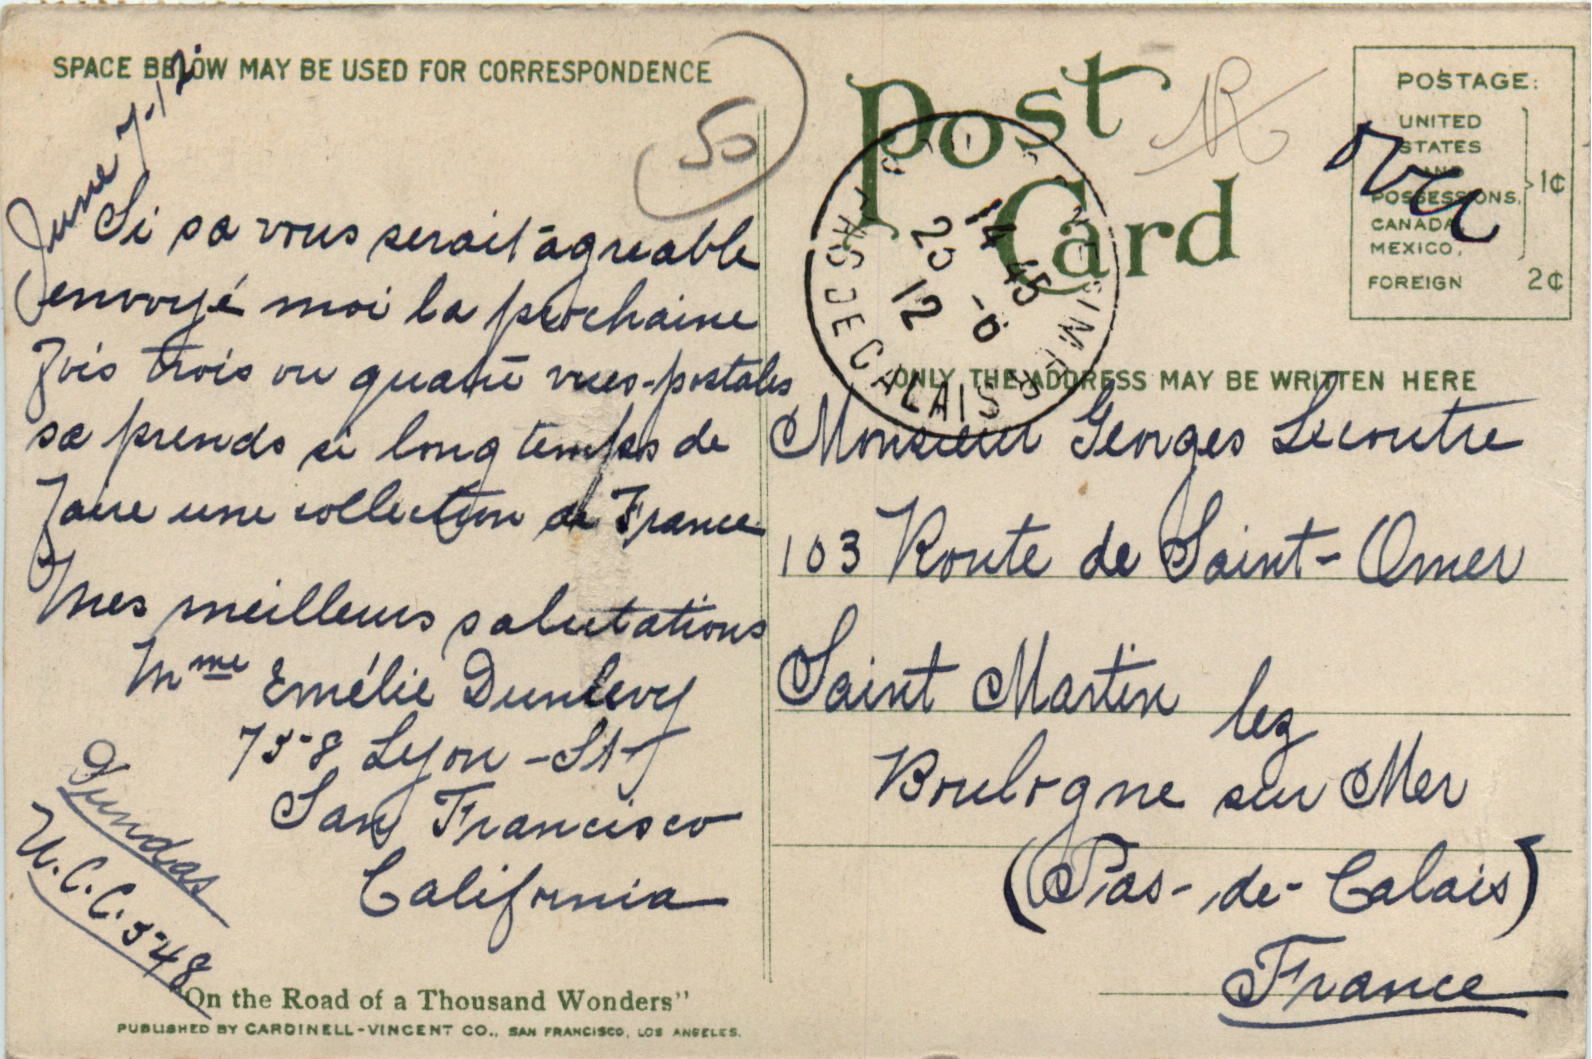 SPACE BELOW MAY BE USED FOR CORRESPONDENCE
June 7-12
50
Si sa vous serait agreable
envoyé moi la prochaine
fois trois ou quatre vues-postales
sa prends si long temps de
faire une collection de France
Mes meilleurs salutations
Mme Emélie Dunlevy
758 Lyon-St
San Francisco
California
Dundas
U.C.C. 548
"On the Road of a Thousand Wonders"
PUBLISHED BY CARDINELL-VINCENT CO., SAN FRANCISCO, LOS ANGELES.
Post Card
POSTAGE:
UNITED
STATES
AND
POSSESSIONS,
CANADA
MEXICO,
1¢
FOREIGN 2¢
14 45
20 -6
12
PAS DE CALAIS
ONLY THE ADDRESS MAY BE WRITTEN HERE
Monsieur Georges Lecoutre
103 Route de Saint-Omer
Saint Martin lez
Boulogne sur Mer
(Pas-de-Calais)
France